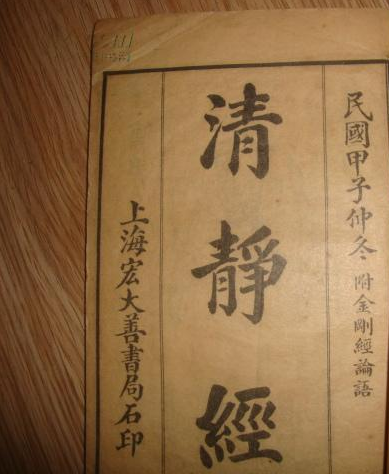 民國甲子仲冬 附金剛經論語
清靜經
上海宏大善書局石印